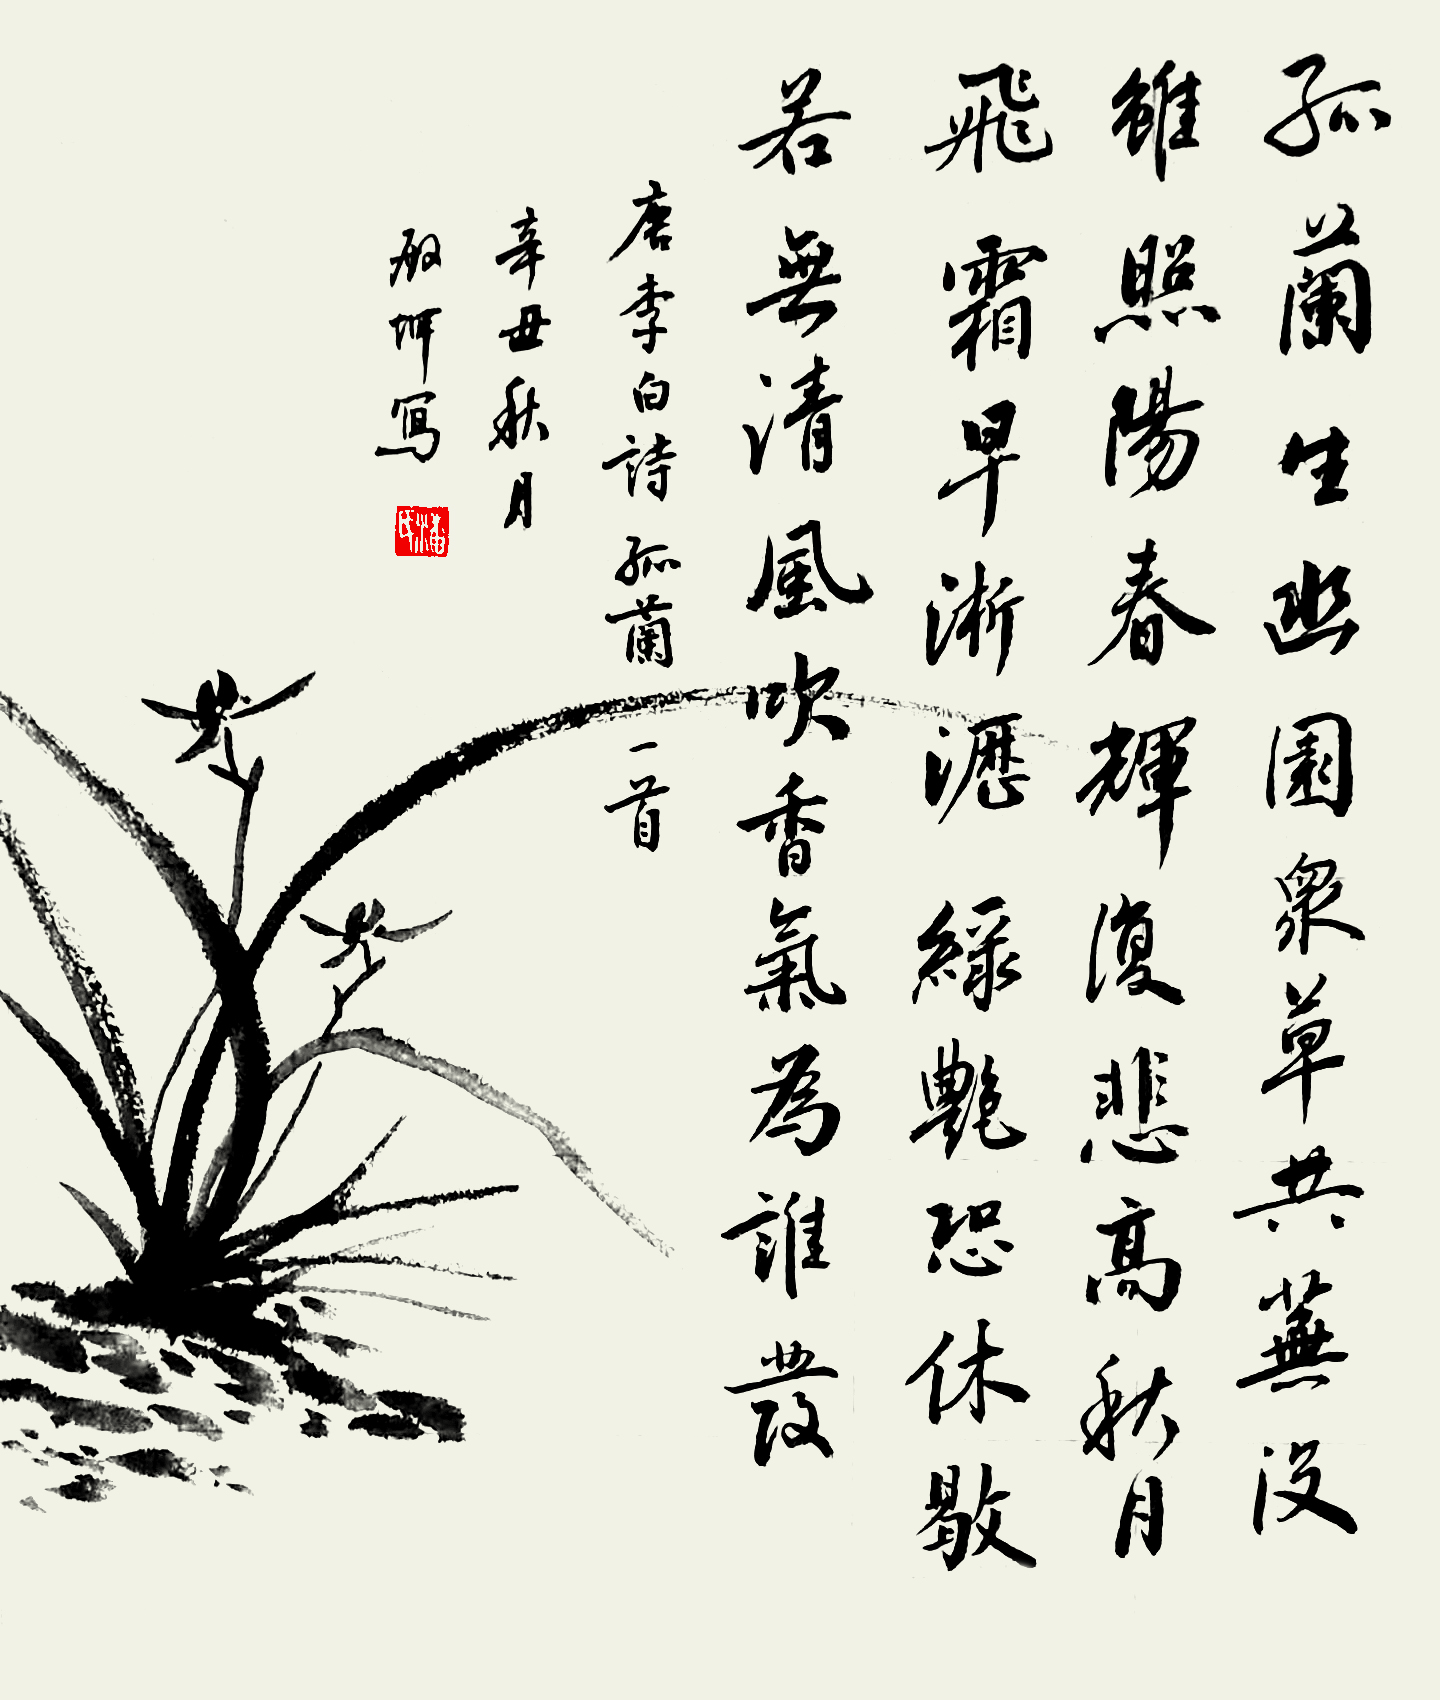 孤蘭生幽園眾草共蕪沒
雖照陽春輝復悲高秋月
飛霜早淅瀝綠艷恐休歇
若無清風吹香氣為誰發
唐李白詩孤蘭一首
辛丑秋月
殷坤寫